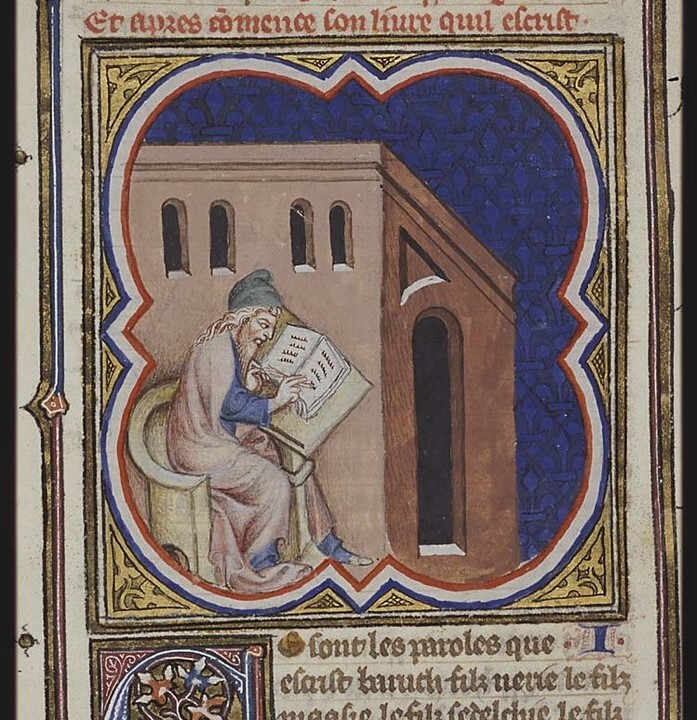 Et apres cōmence son liure quil escrist.
C e sont les paroles que
escrist baruth filz nerie le filz
maasie le filz sedelchie le filz